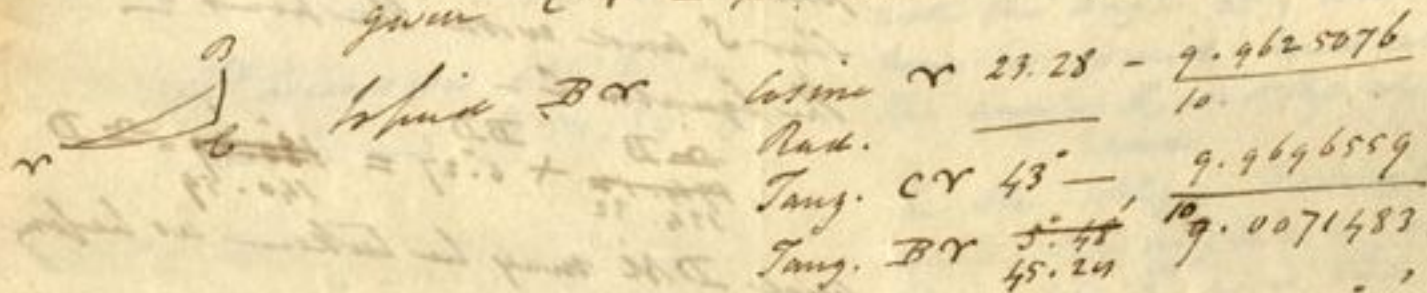 given C ♈
B
To find B♈
♈ C
Cosine ♈ 23.28 - 9.9625076
Rad. —— 10
Tang. C♈ 43° — 9.9696559
Tang. B♈ 5°.48' 10.0071483
45.24